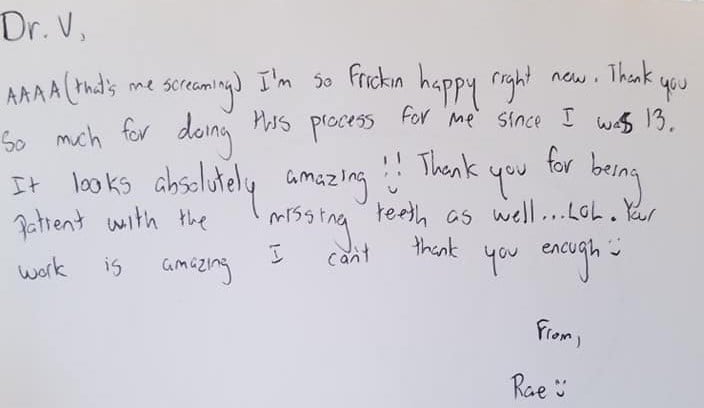 Dr. V,
AAAA (that's me screaming) I'm so frickin happy right now. Thank you
so much for doing this process for me since I was 13.
It looks absolutely amazing!! Thank you for being
patient with the missing teeth as well...LOL. Your
work is amazing I can't thank you enough :)
From,
Rae :)